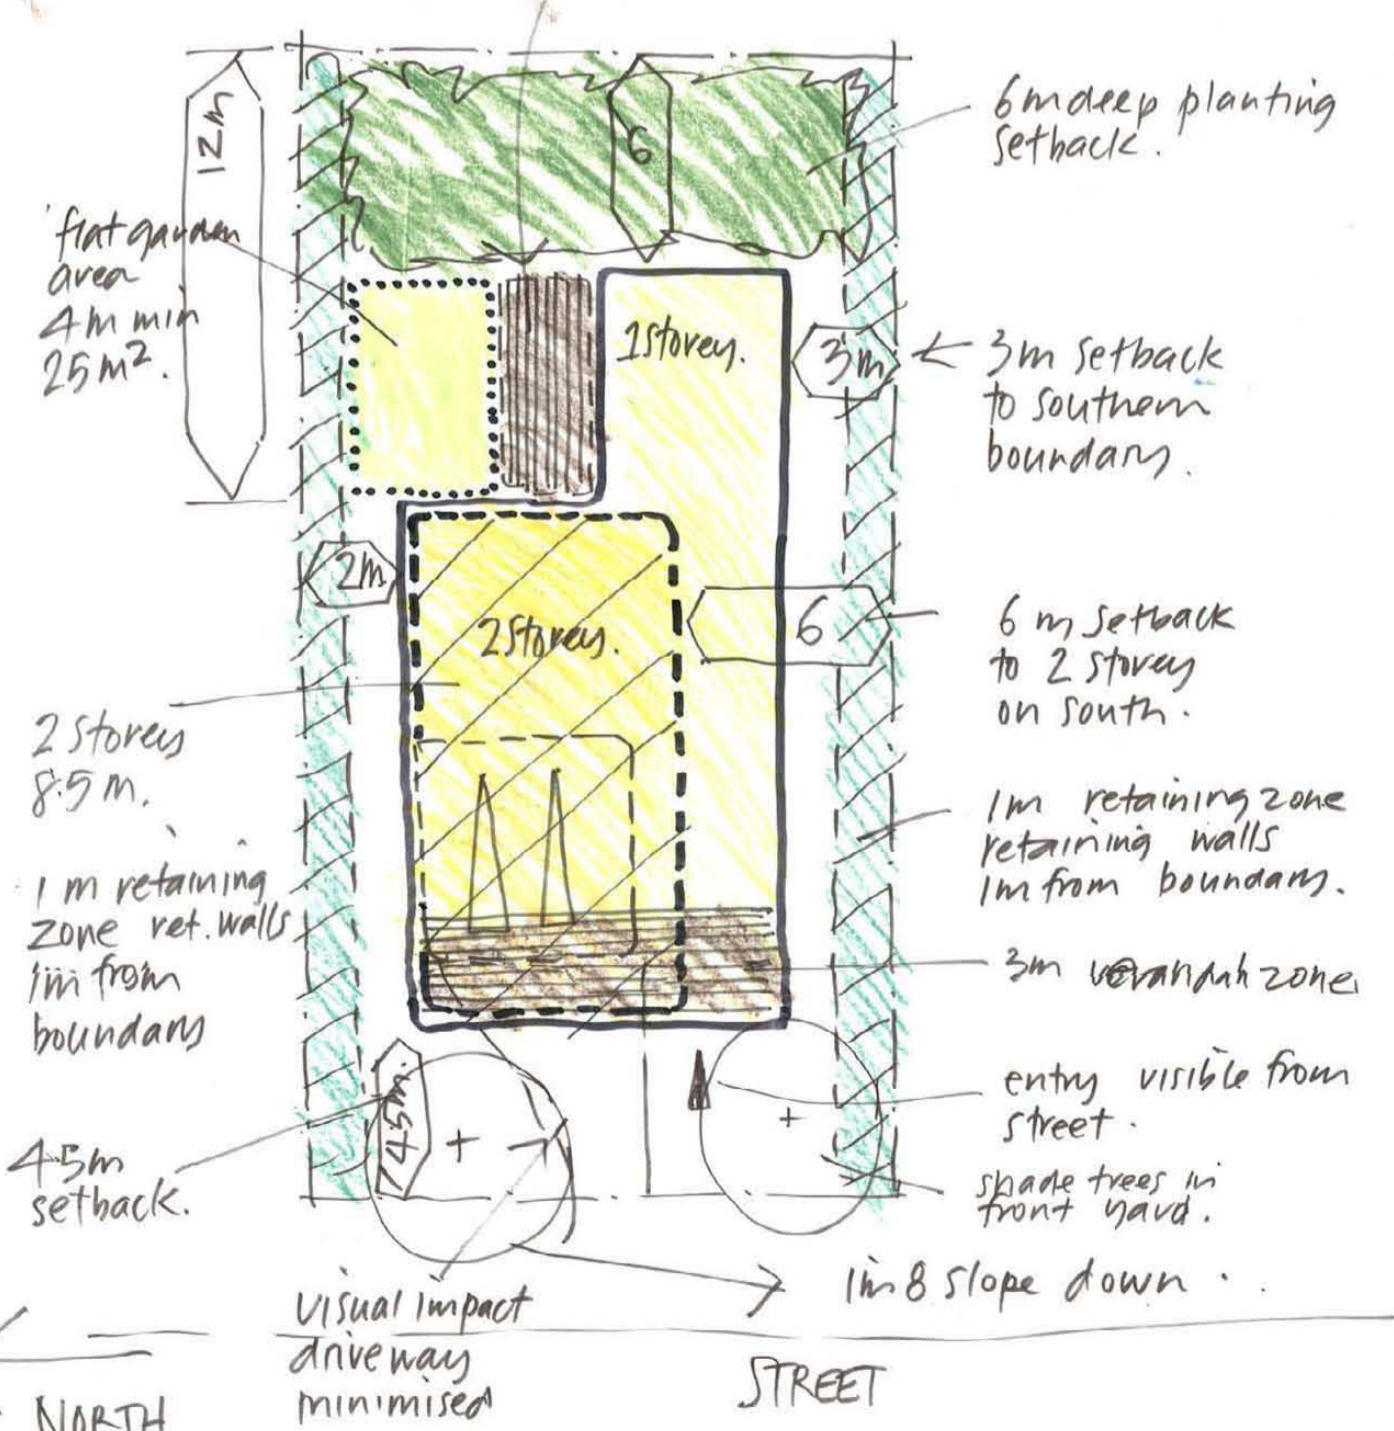 12m
6
6m deep planting
setback.
flat garden
area
4m min
25m².
1 Storey.
3m
3m setback
to southern
boundary.
2m
2 Storey.
6
6 m setback
to 2 storey
on south.
2 Storey
8.5 m.
1m retaining zone
retaining walls
1m from boundary.
1 m retaining
zone ret. walls
1m from
boundary
3m verandah zone
entry visible from
street.
4.5m
setback.
74.5m.
shade trees in
front yard.
1 in 8 slope down.
visual impact
driveway
minimised
STREET
NORTH